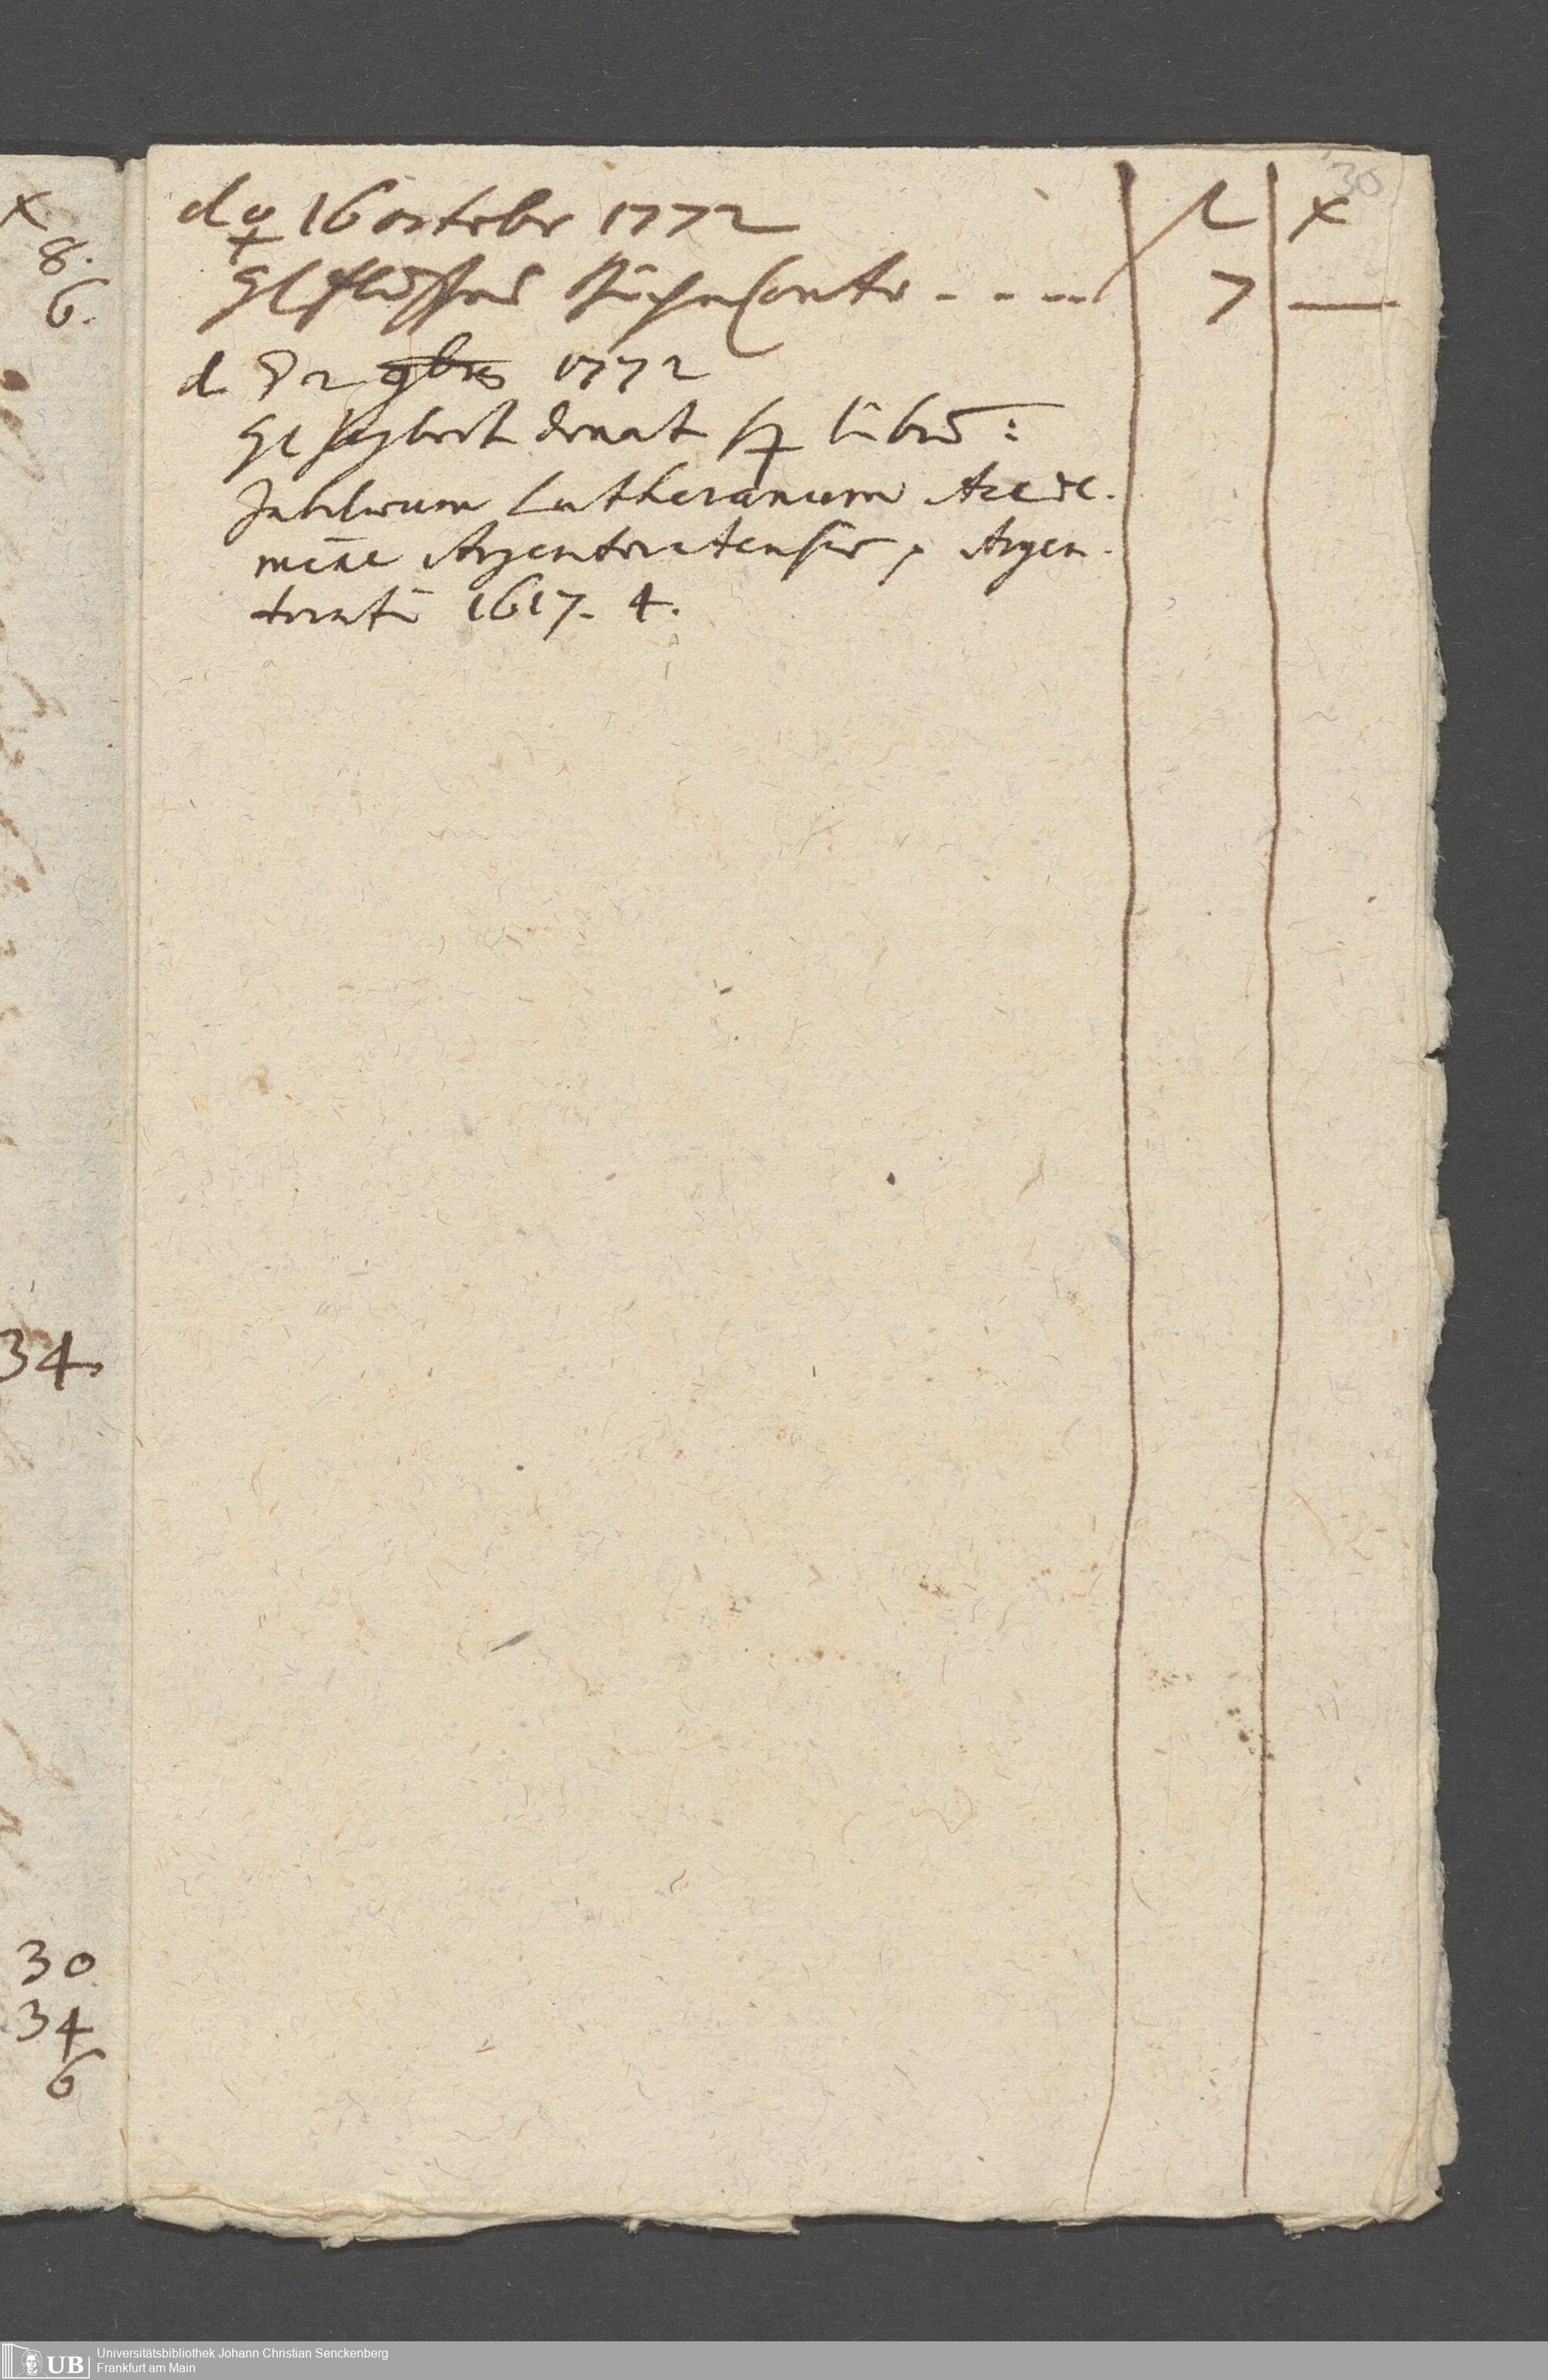 30
d ♀ 16 octobr 1772
x
7 —
d. 2 9br 1772
donat librũ:
Jubilaeum Lutheranum Acade.
miae Argentoratensis, Argen.
torati 1617. 4.
x
8.
6.
34.
30
34
6
UB
Universitätsbibliothek Johann Christian Senckenberg
Frankfurt am Main